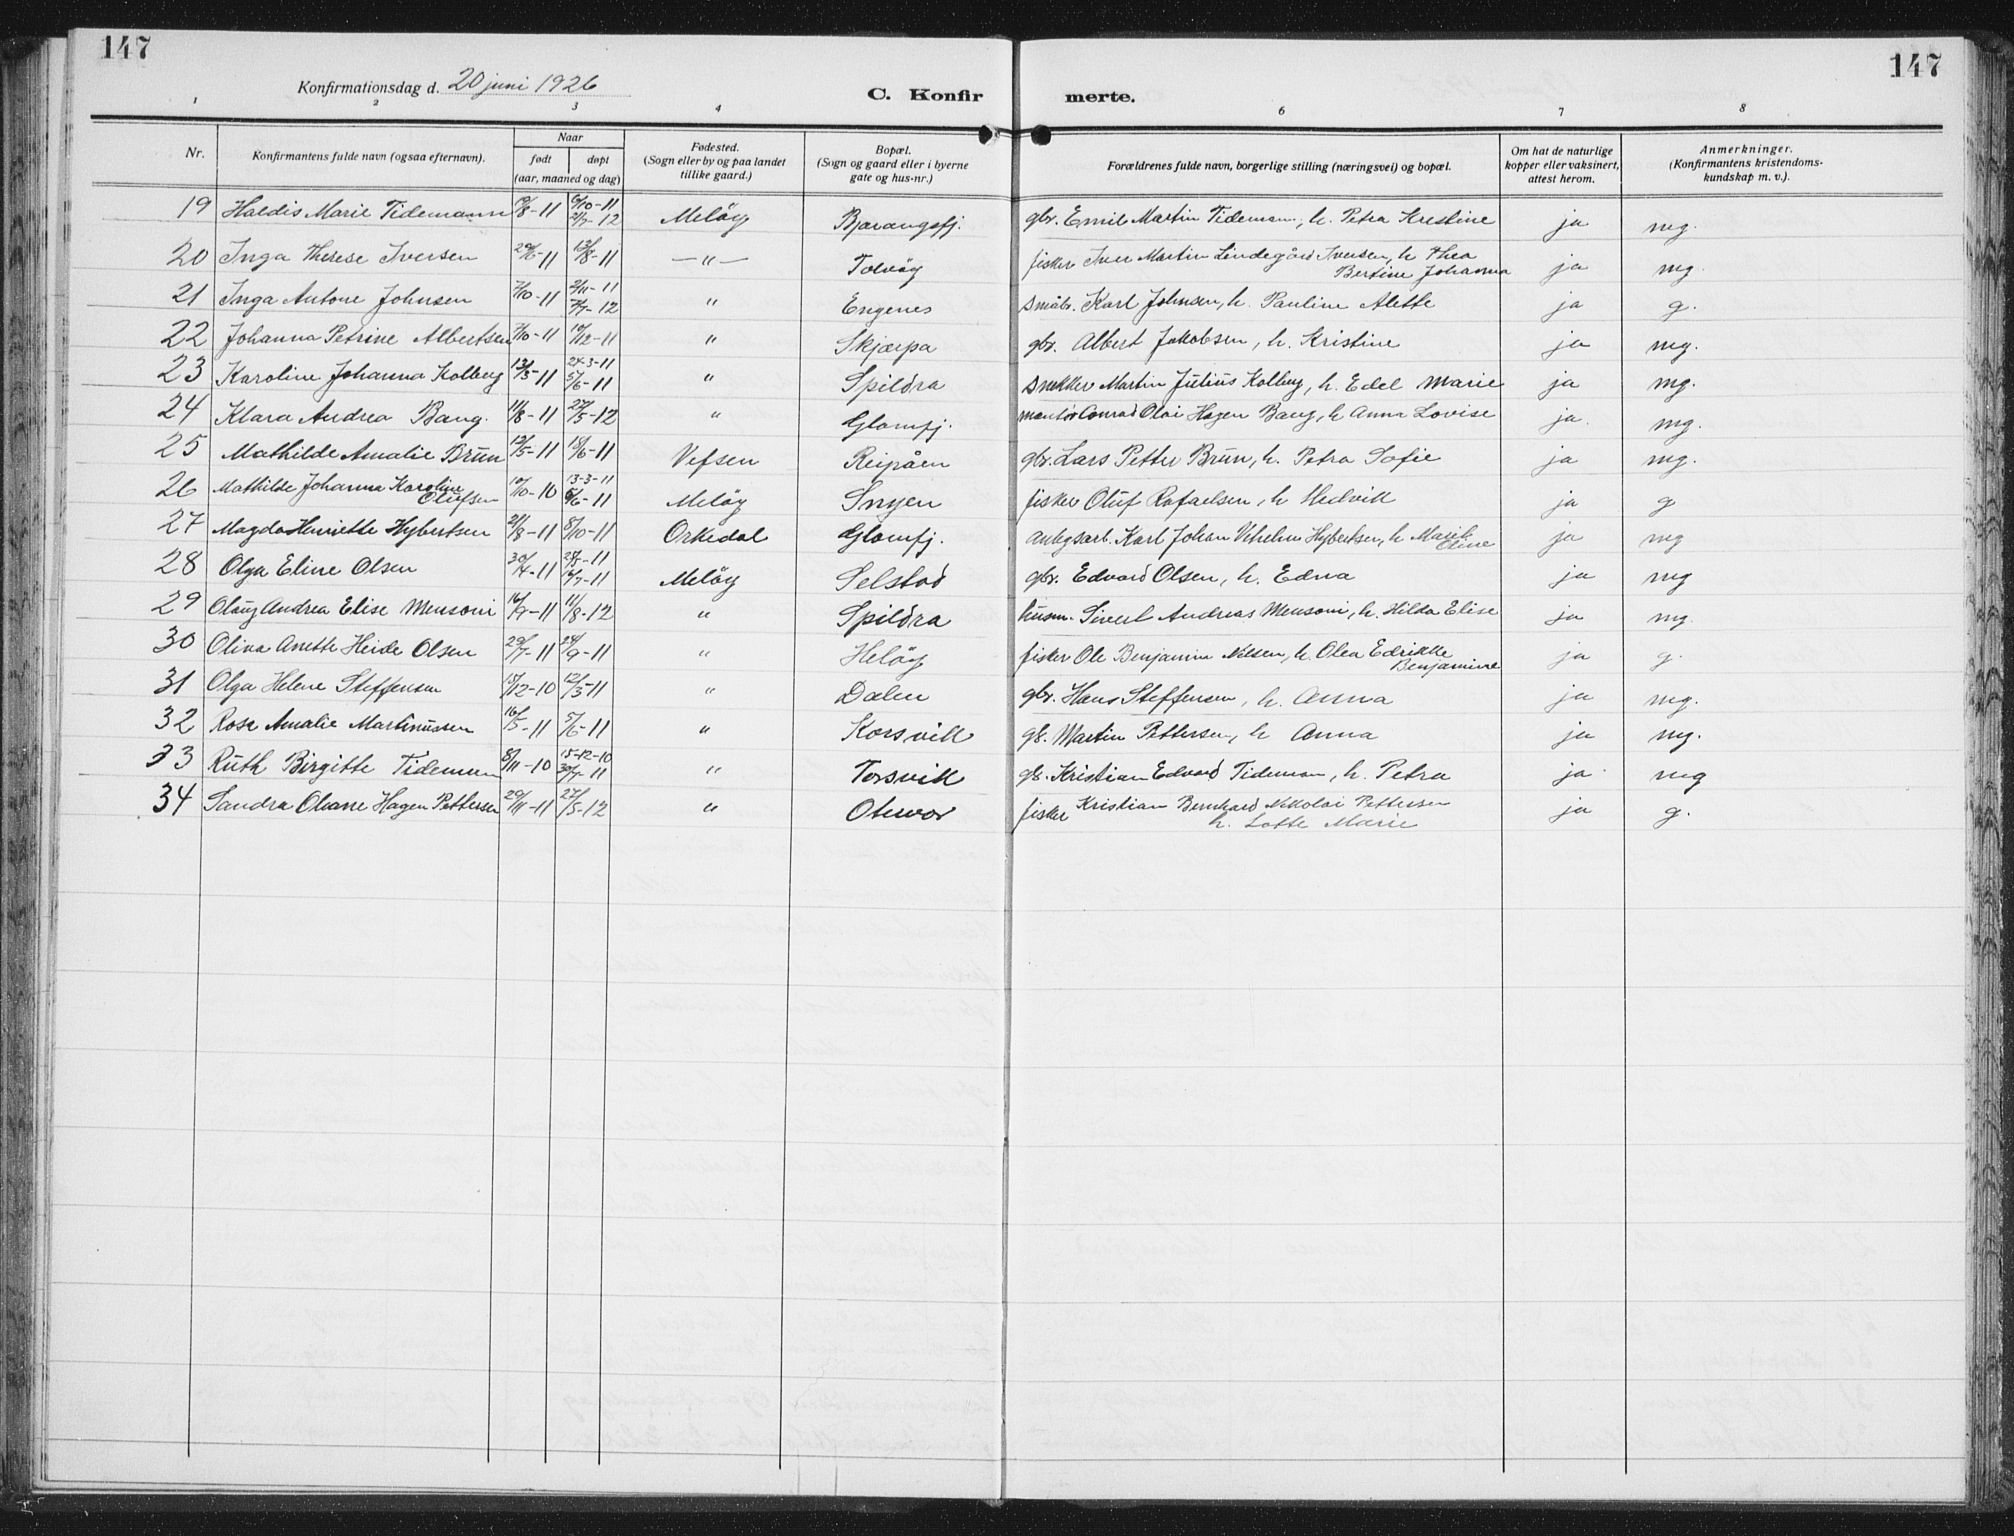 147
147
Konfirmationsdag d. 20 juni 1926
C. Konfir merte.
1 2 3 4 6 7 8
Nr. Konfirmantens fulde navn (ogsaa efternavn). Naar født døpt (aar, maaned og dag) Fødested. (Sogn eller by og paa landet tillike gaard.) Bopæl. (Sogn og gaard eller i byerne gate og hus-nr.) Forældrenes fulde navn, borgerlige stilling (næringsvei) og bopæl. Om hat de naturlige kopper eller vaksinert, attest herom. Anmerkninger. (Konfirmantens kristendoms-kundskap m. v.).
19 Haldis Marie Tidemann 19/8-11 6/10-11 21/7-12 Meløy Bjarangsfj. gbr. Emil Martin Tideman, h. Petra Kristine ja mg.
20 Inga Therese Iversen 29/6-11 13/8-11 -"- Tolvøy fisker Iver Martin Lindegård Iversen, h Thea Bertine Johanna ja mg.
21 Inga Antone Johnsen 7/10-11 2/11-11 7/7-12 " Engenes småbr. Karl Johnsen, h. Pauline Alette ja g.
22 Johanna Petrine Albertsen 7/10-11 10/12-11 " Skjærpa gbr. Albert Jakobsen, h. Kristine ja mg.
23 Karoline Johanna Kolberg 13/3-11 24-3-11 5/6-11 " Spildra snekker Martin Julius Kolberg, h. Edel Marie ja mg.
24 Klara Andrea Bang. 11/8-11 27/5-12 " Glomfj. montør Conrad Olai Hagen Bang, h. Anna Lovise ja. mg.
25 Mathilde Amalie Brun 12/5-11 18/6-11 Vefsen Reipåen gbr. Lars Petter Brun, h. Petra Sofie ja mg.
26 Mathilde Johanna Karoline Olufsen 10/10-10 13-3-11 5/6-11 Meløy Snyen fisker Oluf Rafaelsen, h Hedvik ja g
27 Magda Henriette Hybertsen 21/8-11 8/10-11 Orkedal Glomfj. anlegsarb. Karl Johan Vilhelm Hybertsen, h Marie Oline ja mg
28 Olga Eline Olsen 30/4-11 28/5-11 16/7-11 Meløy Selstad gbr. Edvard Olsen, h. Edna ja mg
29 Olaug Andrea Elise Mensoni 16/9-11 11/8-12 " Spildra husm. Sivert Andreas Mensoni, h. Hilda Elise ja mg.
30 Olina Anette Heide Olsen 29/7-11 24/9-11 " Heløy fisker Ole Benjamin Nilsen, h. Olea Edrikke Benjamine ja g.
31 Olga Helene Steffensen 15/12-10 12/3-11 " Dalen gbr. Hans Steffensen, h. Anna ja mg.
32 Rosa Amalie Martinussen 16/5-11 5/6-11 " Korsvik gb. Martin Pettersen, h Anna ja mg.
33 Ruth Birgitte Tideman 8/11-10 15-12-10 30/7-11 " Torsvik gb. Kristian Edvard Tideman, h. Petra ja mg
34 Sandra Oliane Hagen Pettersen 29/11-11 27/5-12 " Otervor fisker Kristian Bernhard Nikolai Pettersen h. Lotte Marie ja g.